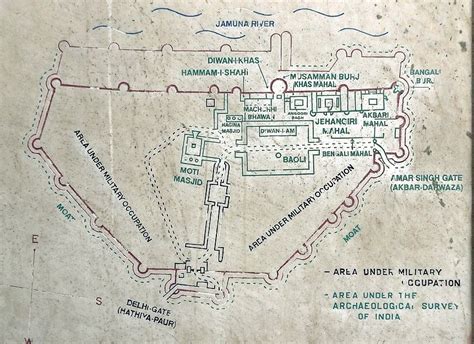 JAMUNA RIVER
DIWAN-I-KHAS
HAMMAM-I-SHAHI
MUSAMMAN BURJ
KHAS MAHAL
BANGALI
BURJ
MACHCHHI
BHAWAN
ANGOORI
BAGH
NAGINA
MASJID
DIWAN-I-AM
JEHANGIRI
MAHAL
AKBARI
MAHAL
BENGALI MAHAL
BAOLI
MOTI
MASJID
AMAR SINGH GATE
(AKBAR-DARWAZA)
AREA UNDER MILITARY OCCUPATION
AREA UNDER MILITARY OCCUPATION
MOAT
MOAT
DELHI-GATE
(HATHIYA-PAUR)
E
S
W
- AREA UNDER MILITARY
OCCUPATION
- AREA UNDER THE
ARCHAEOLOGICAL SURVEY
OF INDIA